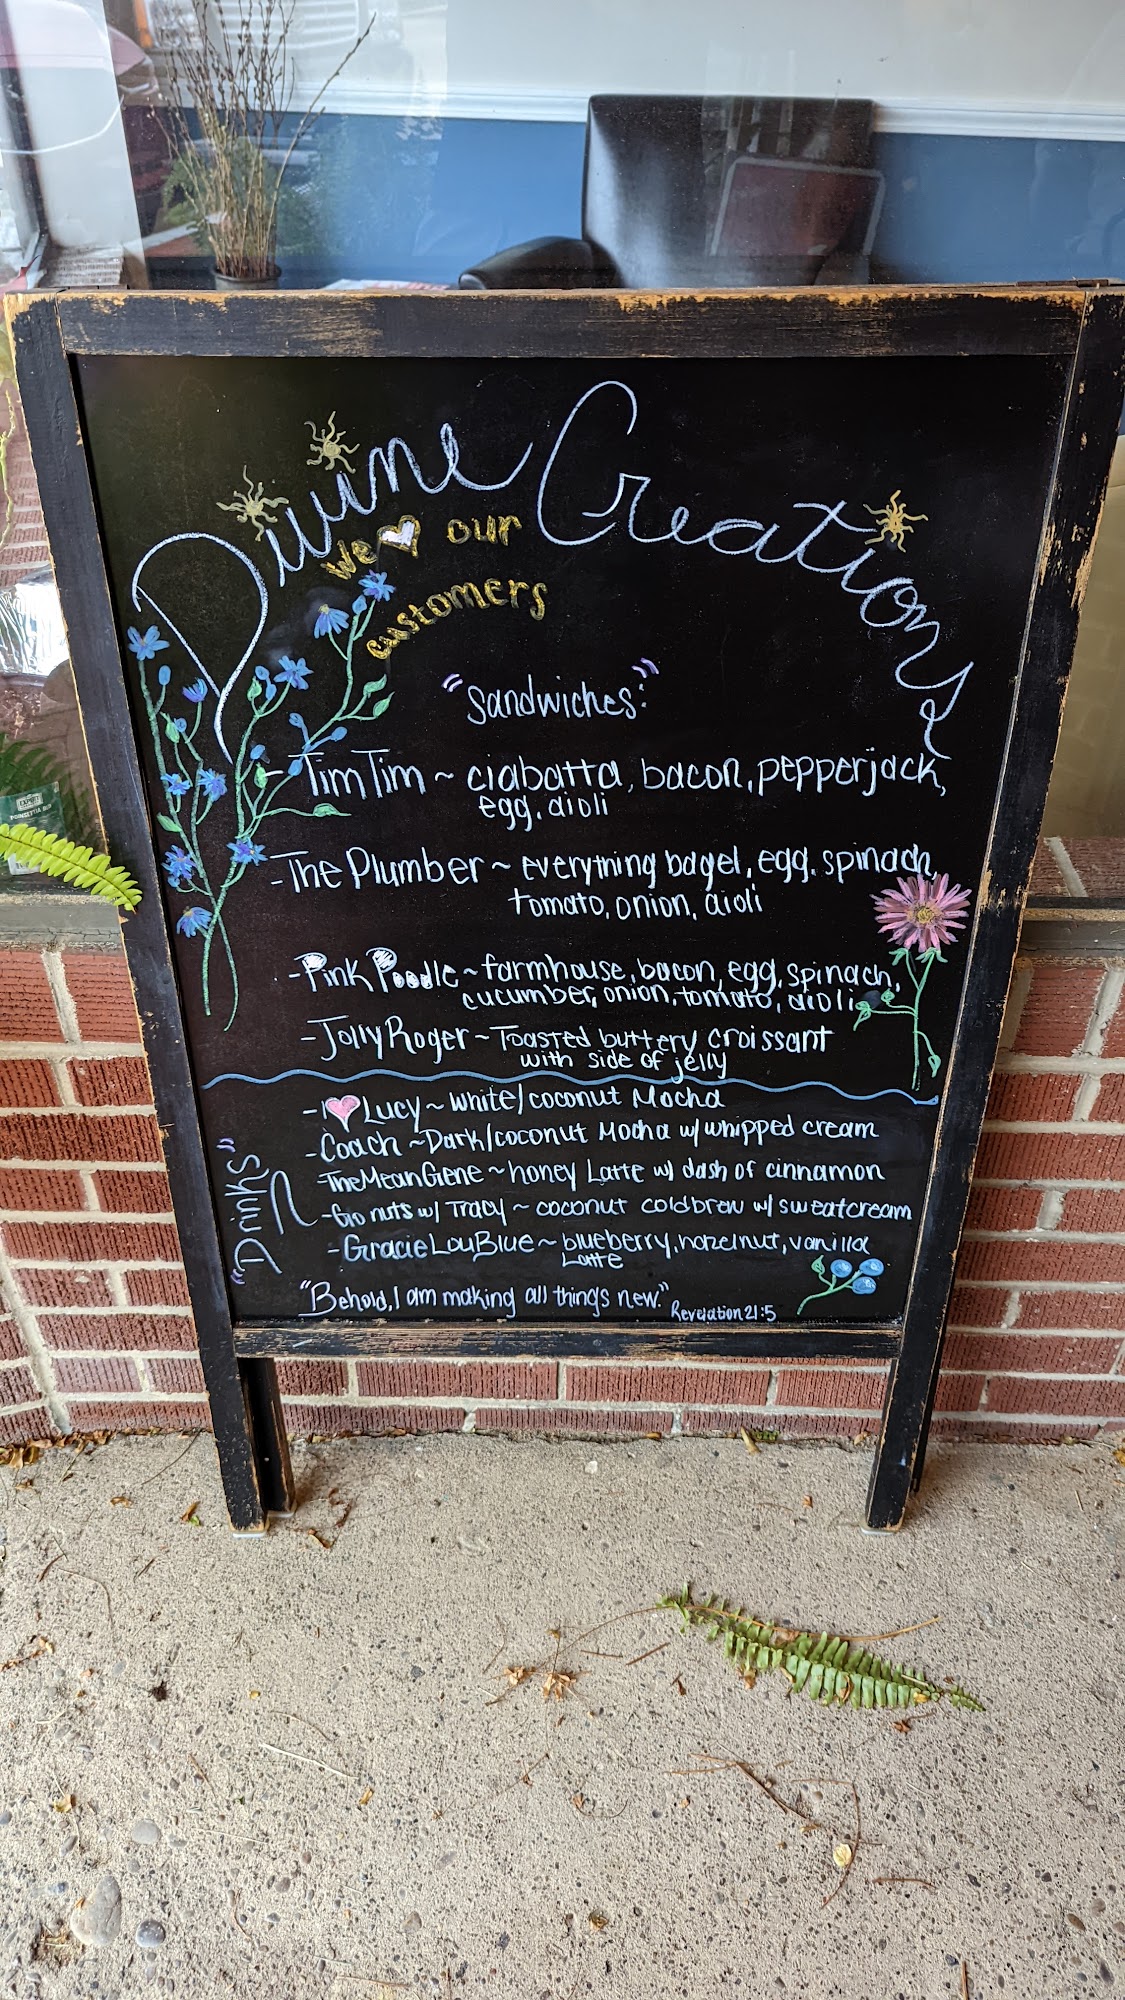 Divine Creations
We ♥ our
customers
"Sandwiches:"
- Tim Tim ~ ciabatta, bacon, pepperjack,
egg, aioli
- The Plumber ~ everything bagel, egg, spinach,
tomato, onion, aioli
- Pink Poodle ~ farmhouse, bacon, egg, spinach,
cucumber, onion, tomato, aioli
- Jolly Roger ~ Toasted buttery croissant
with side of jelly
"Drinks"
- I ♥ Lucy ~ white/coconut Mocha
- Coach ~ Dark/coconut Mocha w/ whipped cream
- The Mean Gene ~ honey Latte w/ dash of cinnamon
- Go nuts w/ Tracy ~ coconut coldbrew w/ sweatcream
- Gracie Lou Blue ~ blueberry, hazelnut, vanilla
Latte
"Behold, I am making all things new." Revelation 21:5